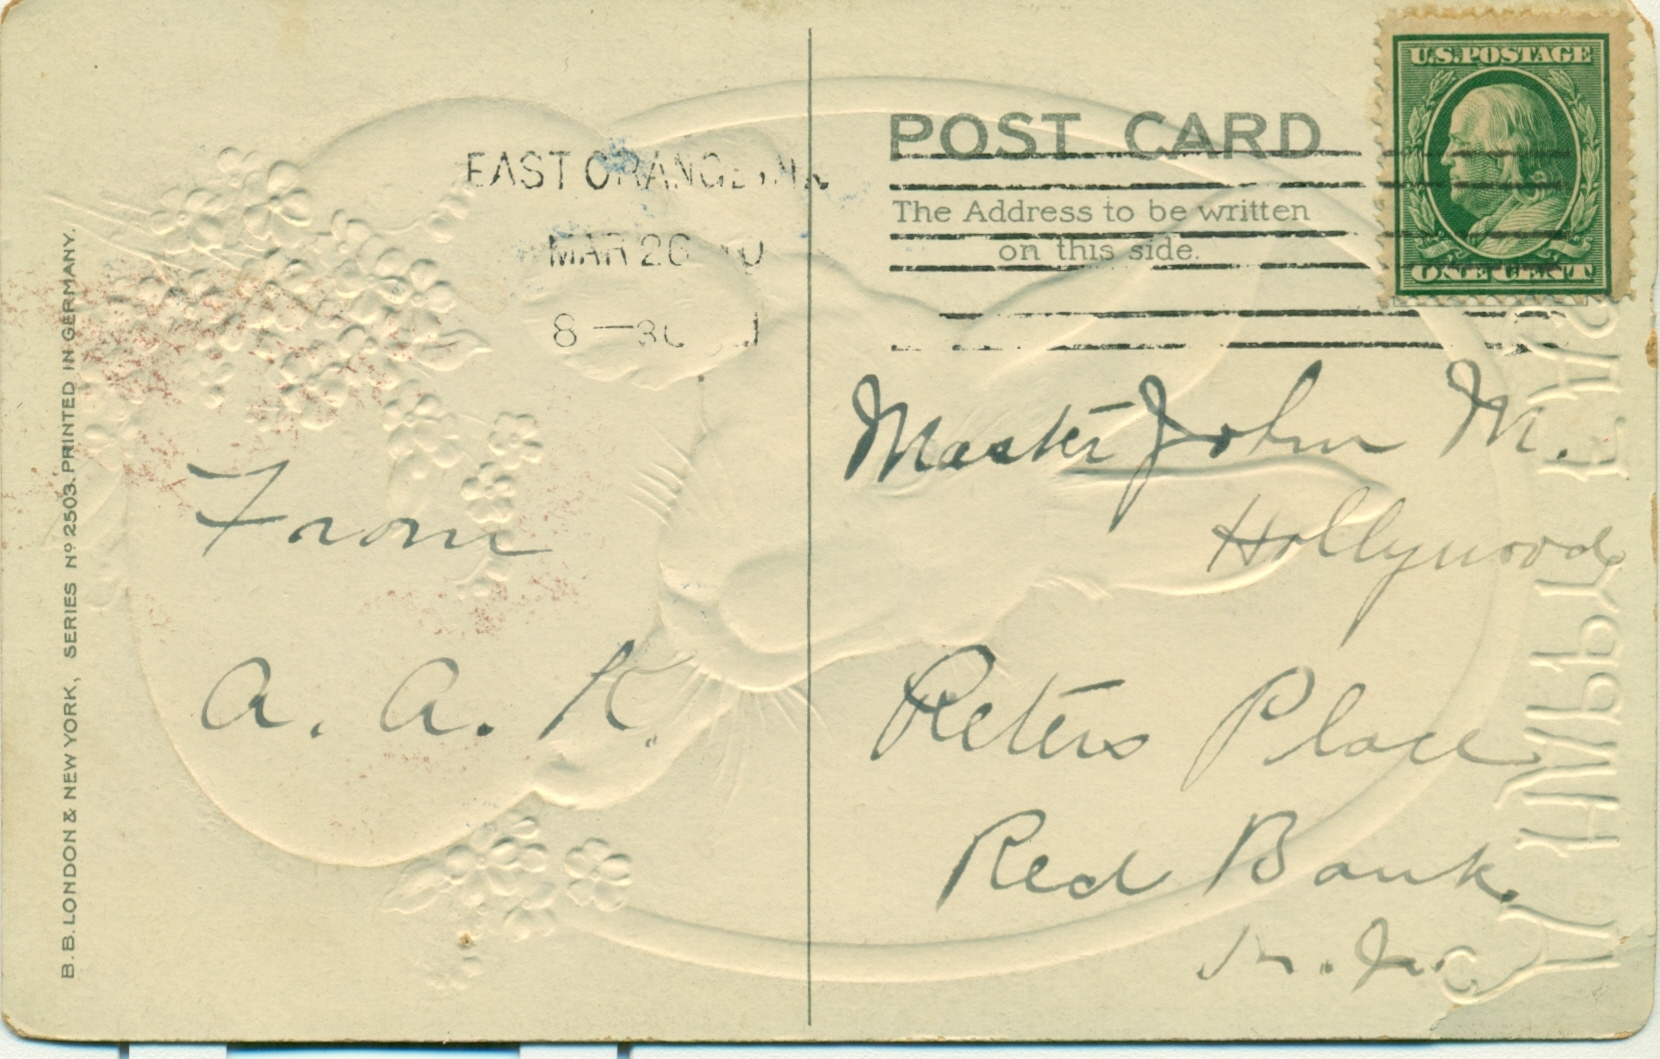 B. B. LONDON & NEW YORK, SERIES Nº 2503. PRINTED IN GERMANY.
EAST ORANGE, N.
MAR 26
8 —30
From
A. A. K.
POST CARD
The Address to be written
on this side.
U.S. POSTAGE
ONE CENT
Master John M.
Hollywood
Peters Place
Red Bank.
N. J.